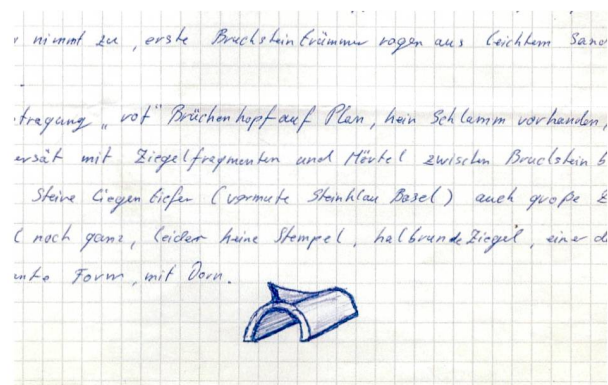 nimmt zu, erste Bruchsteintrümmer ragen aus leichtem Sand
tragung "rot" Brückenkopf auf Plan, kein Schlamm vorhanden,
ersät mit Ziegelfragmenten und Mörtel zwischen Bruchstein b
Steine liegen tiefer (vermute Steinklau Basel) auch große Z
noch ganz, leider keine Stempel, halbrunde Ziegel, einer d
Form, mit Dorn.